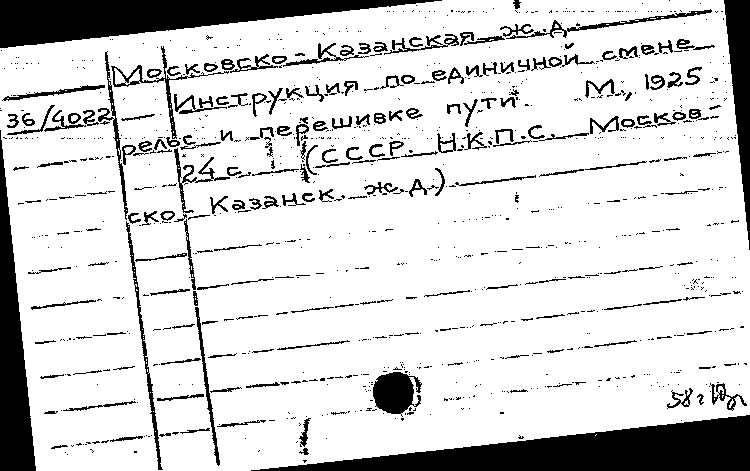 Московско-Казанская ж.д.
36/4022
Инструкция по единичной смене
рельс и перешивке пути. М., 1925.
24 с. (СССР. Н.К.П.С. Москов-
ско-Казанск. ж.д.).
58г